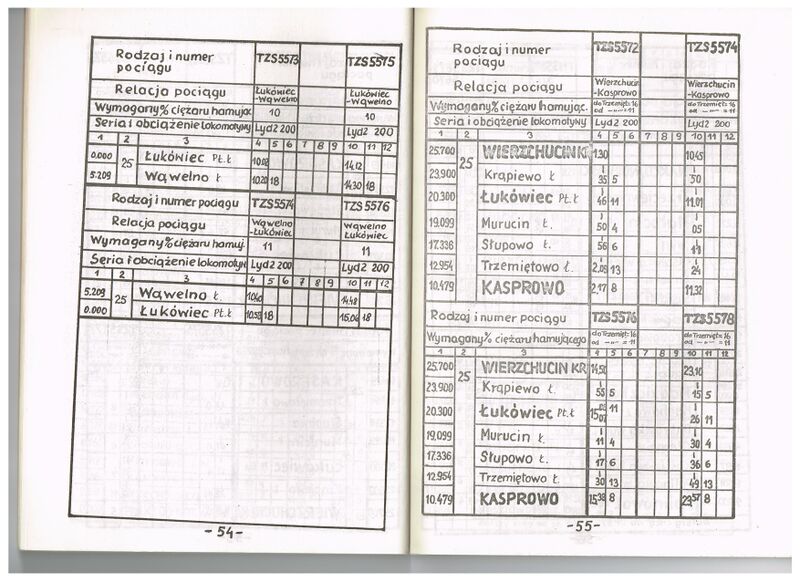 Rodzaj i numer pociągu TZS5573 TZS5575
Relacja pociągu Łukówiec -Wąwelno Łukówiec -Wąwelno
Wymagany % ciężaru hamując. 10 10
Seria i obciążenie lokomotywy Lyd2 200 Lyd2 200
1 2 3 4 5 6 7 8 9 10 11 12
0.000 25 Łukówiec Pt.ł 10.02 14.12
5.209 Wąwelno ł 10.20 18 14.30 18
Rodzaj i numer pociągu TZS5574 TZS5576
Relacja pociągu Wąwelno -Łukówiec Wąwelno Łukówiec
Wymagany % ciężaru hamuj. 11 11
Seria i obciążenie lokomotyw Lyd2 200 Lyd2 200
1 2 3 4 5 6 7 8 9 10 11 12
5.209 25 Wąwelno Ł. 10.40 14.48
0.000 Łukówiec Pt.ł 10.58 18 15.06 18
-54-
Rodzaj i numer pociągu TZS5572 TZS5574
Relacja pociągu Wierzchucin -Kasprowo Wierzchucin -Kasprowo
Wymagany % ciężaru hamując. do Trzemięt: 16 od -„- = 11 do Trzemięt: 16 od -„- = 11
Seria i obciążenie lokomotywy Lyd2 200 Lyd2 200
1 2 3 4 5 6 7 8 9 10 11 12
25.700 25 WIERZCHUCIN KR 1.30 10.45
23.900 Krąpiewo Ł 35 5 50
20.300 Łukówiec Pt.ł. 46 11 11.01
19.099 Murucin Ł. 50 4 05
17.336 Słupowo Ł. 56 6 11
12.954 Trzemiętowo Ł. 2.09 13 24
10.479 KASPROWO 2.17 8 11.32
Rodzaj i numer pociągu TZS5576 TZS5578
Wymagany % ciężaru hamującego do Trzemięt: 16 od -„- = 11 do Trzemięt: 16 od -„- = 11
1 2 3 4 5 6 7 8 9 10 11 12
25.700 25 WIERZCHUCIN KR 14.50 23.10
23.900 Krąpiewo Ł. 55 5 15 5
20.300 Łukówiec Pt.ł 15 07 11 26 11
19.099 Murucin Ł. 11 4 30 4
17.336 Słupowo Ł. 17 6 36 6
12.954 Trzemiętowo Ł. 30 13 49 13
10.479 KASPROWO 15.38 8 23.57 8
-55-